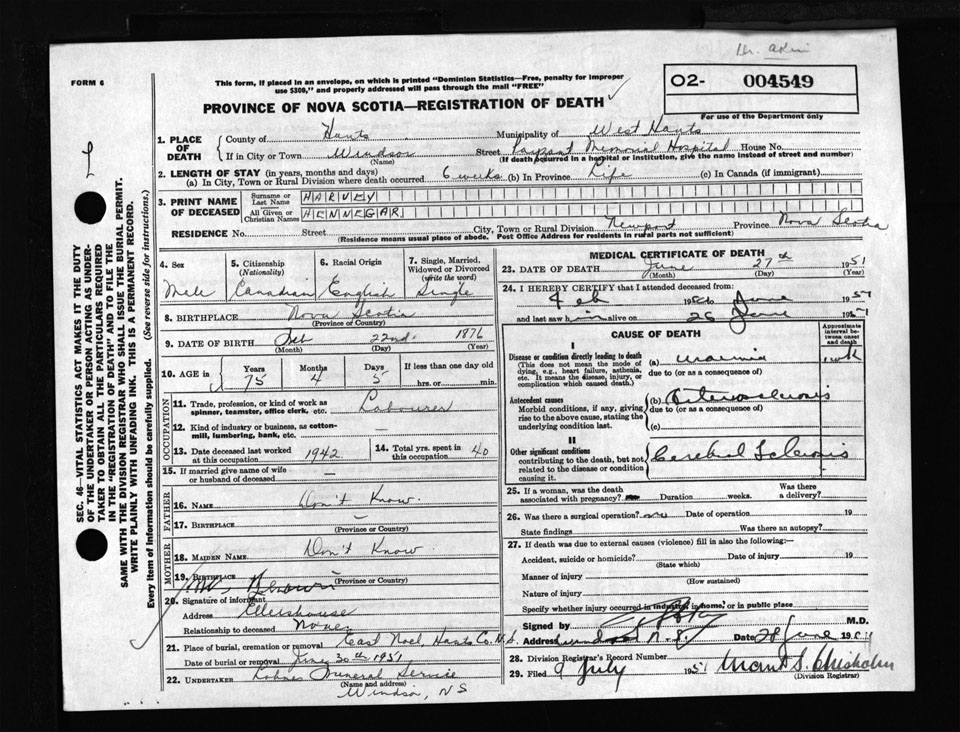 FORM 6
This form, if placed in an envelope, on which is printed "Dominion Statistics—Free, penalty for improper
use $300," and properly addressed will pass through the mail "FREE"
PROVINCE OF NOVA SCOTIA—REGISTRATION OF DEATH
02- 004549
For use of the Department only
SEC. 46—VITAL STATISTICS ACT MAKES IT THE DUTY
OF THE UNDERTAKER OR PERSON ACTING AS UNDER-
TAKER TO OBTAIN ALL THE PARTICULARS REQUIRED
IN THE "REGISTRATION OF DEATH" AND TO FILE THE
SAME WITH THE DIVISION REGISTRAR WHO SHALL ISSUE THE BURIAL PERMIT.
WRITE PLAINLY WITH UNFADING INK. THIS IS A PERMANENT RECORD.
Every item of information should be carefully supplied. (See reverse side for instructions.)
1. PLACE OF DEATH
County of Hants Municipality of West Hants
If in City or Town Windsor Street Payzant Memorial Hospital House No.
(Name) (If death occurred in a hospital or institution, give the name instead of street and number)
2. LENGTH OF STAY (in years, months and days)
(a) In City, Town or Rural Division where death occurred 6 weeks (b) In Province Life (c) In Canada (if immigrant)
3. PRINT NAME OF DECEASED
Surname or Last Name HARVEY
All Given or Christian Names HENNEGAR
RESIDENCE No. Street City, Town or Rural Division Newport Province Nova Scotia
(Residence means usual place of abode. Post Office Address for residents in rural parts not sufficient)
4. Sex Male
5. Citizenship (Nationality) Canadian
6. Racial Origin English
7. Single, Married, Widowed or Divorced (write the word) Single
8. BIRTHPLACE Nova Scotia
(Province or Country)
9. DATE OF BIRTH Feb 22nd 1876
(Month) (Day) (Year)
10. AGE in Years 75 Months 4 Days 5 If less than one day old
hrs. or min.
OCCUPATION
11. Trade, profession, or kind of work as
spinner, teamster, office clerk, etc. Labourer
12. Kind of industry or business, as cotton-
mill, lumbering, bank, etc.
13. Date deceased last worked at this occupation 1942
14. Total yrs. spent in this occupation 40
15. If married give name of wife
or husband of deceased —
FATHER
16. NAME Don't Know
17. BIRTHPLACE —
(Province or Country)
MOTHER
18. MAIDEN NAME Don't Know
19. BIRTHPLACE
(Province or Country)
20. Signature of informant
Address Ellershouse
Relationship to deceased None
21. Place of burial, cremation or removal East Noel Hants Co. N.S.
Date of burial or removal June 30th 1951
22. UNDERTAKER Funeral Service
(Name and address)
Windsor, NS
MEDICAL CERTIFICATE OF DEATH
23. DATE OF DEATH June 27th 1951
(Month) (Day) (Year)
24. I HEREBY CERTIFY that I attended deceased from:
Feb to June 1951
and last saw him alive on 26 June 1951
CAUSE OF DEATH
Approximate interval between onset and death
I
Disease or condition directly leading to death
(This does not mean the mode of
dying, e.g., heart failure, asthenia,
etc. It means the disease, injury, or
complication which caused death.)
(a) uraemia 1 wk
due to (or as a consequence of)
Antecedent causes
Morbid conditions, if any, giving
rise to the above cause, stating the
underlying condition last.
(b) Arteriosclerosis
due to (or as a consequence of)
(c)
II
Other significant conditions
contributing to the death, but not
related to the disease or condition
causing it.
Cerebral Sclerosis
25. If a woman, was the death
associated with pregnancy? Duration weeks. Was there a delivery?
26. Was there a surgical operation? no Date of operation 19
State findings Was there an autopsy?
27. If death was due to external causes (violence) fill in also the following:—
Accident, suicide or homicide? Date of injury 19
(State which)
Manner of injury
(How sustained)
Nature of injury
Specify whether injury occurred in industry, in home, or in public place
Signed by M.D.
Address Windsor N.S. Date 28 June 1951
28. Division Registrar's Record Number
29. Filed 9 July 1951 Chisholm
(Division Registrar)